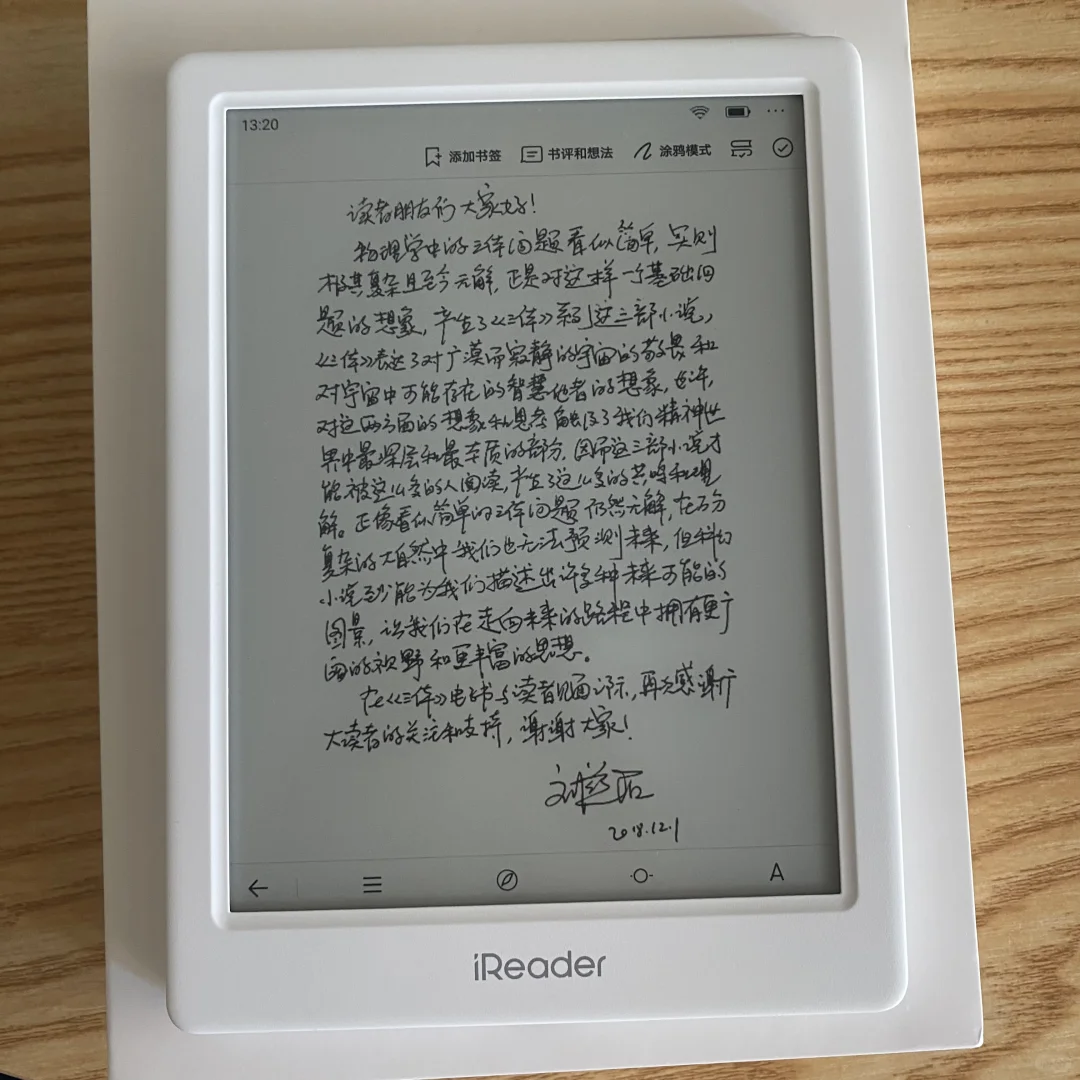 13:20
添加书签 书评和想法 涂鸦模式
读者朋友们大家好！
物理学中的三体问题看似简单，实则
极其复杂且至今无解，正是对这样一个基础问
题的想象，产生了《三体》系列这三部小说，
《三体》表达了对广漠而寂静的宇宙的敬畏和
对宇宙中可能存在的智慧他者的想象，也许，
对这两方面的想象和思考触及了我们精神世
界中最深层和最本质的部分，因而这三部小说才
能被这么多的人阅读，产生了这么多的共鸣和理
解。正像看似简单的三体问题仍然无解，在万分
复杂的大自然中我们也无法预测未来，但科幻
小说至少能为我们描述出许多种未来可能的
图景，让我们在走向未来的路程中拥有更广
阔的视野和更丰富的思想。
在《三体》电子书与读者见面之际，再次感谢广
大读者的关注和支持，谢谢大家！
刘慈欣
2018.12.1
A
iReader